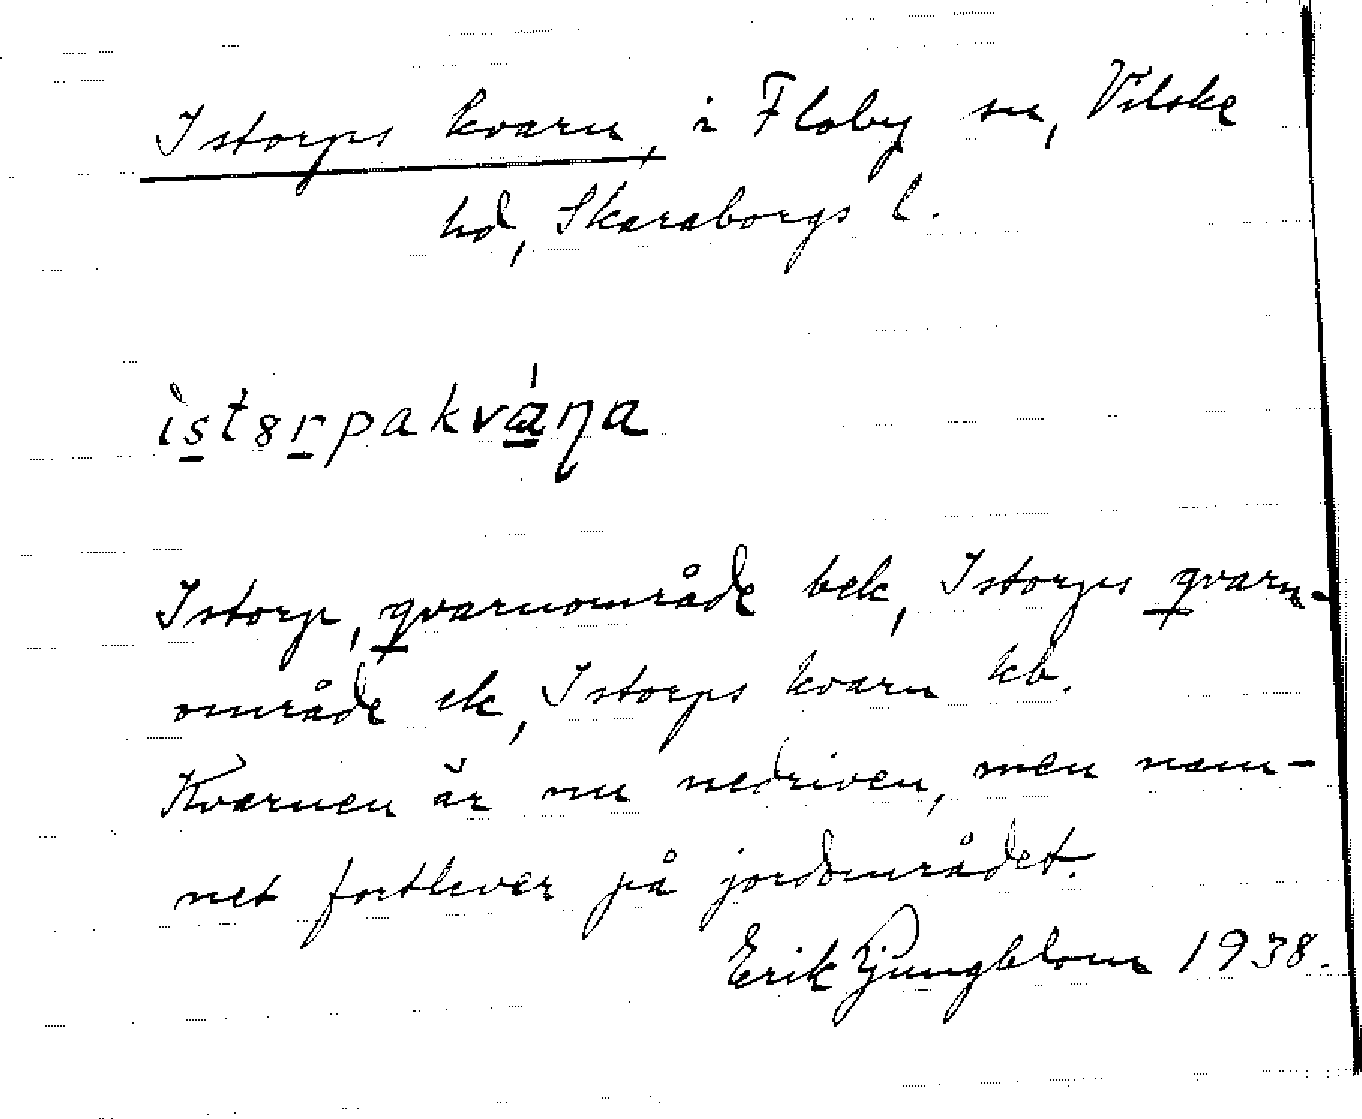 Istorps kvarn, i Floby sn, Vilske
hd, Skaraborgs l.
ìst8rpakvána
Istorp, qvarnområde bek, Istorps qvarn-
område ek, Istorps kvarn kb.
Kvarnen är nu nedriven, men nam-
net fortlever på jordområdet.
Erik Ljungblom 1938.